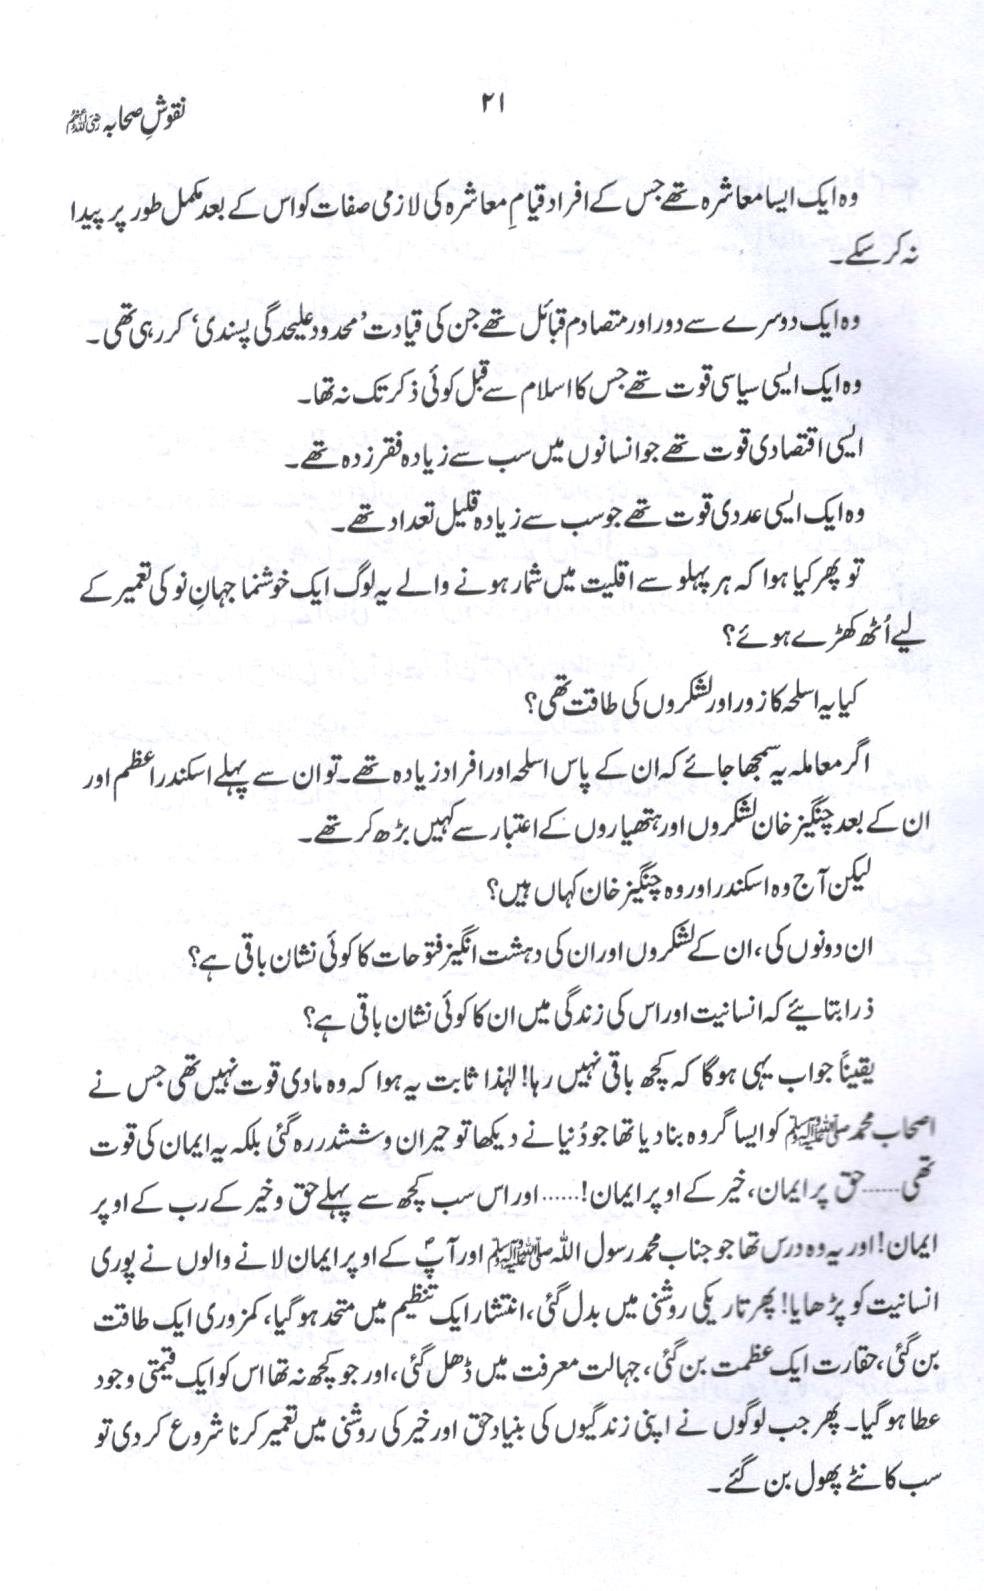 نقوشِ صحابہ رضی اللہ عنہم
۲۱
وہ ایک ایسا معاشرہ تھے جس کے افراد قیامِ معاشرہ کی لازمی صفات کو اس کے بعد مکمل طور پر پیدا
نہ کر سکے۔
وہ ایک دوسرے سے دور اور متصادم قبائل تھے جن کی قیادت ’محدود علیحدگی پسندی‘ کر رہی تھی۔
وہ ایک ایسی سیاسی قوت تھے جس کا اسلام سے قبل کوئی ذکر تک نہ تھا۔
ایسی اقتصادی قوت تھے جو انسانوں میں سب سے زیادہ فقر زدہ تھے۔
وہ ایک ایسی عددی قوت تھے جو سب سے زیادہ قلیل تعداد تھے۔
تو پھر کیا ہوا کہ ہر پہلو سے اقلیت میں شمار ہونے والے یہ لوگ ایک خوشنما جہانِ نو کی تعمیر کے
لیے اُٹھ کھڑے ہوئے؟
کیا یہ اسلحہ کا زور اور لشکروں کی طاقت تھی؟
اگر معاملہ یہ سمجھا جائے کہ ان کے پاس اسلحہ اور افراد زیادہ تھے۔ تو ان سے پہلے اسکندر اعظم اور
ان کے بعد چنگیز خان لشکروں اور ہتھیاروں کے اعتبار سے کہیں بڑھ کر تھے۔
لیکن آج وہ اسکندر اور وہ چنگیز خان کہاں ہیں؟
ان دونوں کی، ان کے لشکروں اور ان کی دہشت انگیز فتوحات کا کوئی نشان باقی ہے؟
ذرا بتائیے کہ انسانیت اور اس کی زندگی میں ان کا کوئی نشان باقی ہے؟
یقیناً جواب یہی ہوگا کہ کچھ باقی نہیں رہا! لہٰذا ثابت یہ ہوا کہ وہ مادی قوت نہیں تھی جس نے
اصحاب محمد صلی اللہ علیہ وسلم کو ایسا گروہ بنا دیا تھا جو دُنیا نے دیکھا تو حیران و ششدر رہ گئی بلکہ یہ ایمان کی قوت
تھی...... حق پر ایمان، خیر کے اوپر ایمان!...... اور اس سب کچھ سے پہلے حق و خیر کے رب کے اوپر
ایمان! اور یہ وہ درس تھا جو جناب محمد رسول اللہ صلی اللہ علیہ وسلم اور آپؐ کے اوپر ایمان لانے والوں نے پوری
انسانیت کو پڑھایا! پھر تاریکی روشنی میں بدل گئی، انتشار ایک تنظیم میں متحد ہو گیا، کمزوری ایک طاقت
بن گئی، حقارت ایک عظمت بن گئی، جہالت معرفت میں ڈھل گئی، اور جو کچھ نہ تھا اس کو ایک قیمتی وجود
عطا ہو گیا۔ پھر جب لوگوں نے اپنی زندگیوں کی بنیاد حق اور خیر کی روشنی میں تعمیر کرنا شروع کر دی تو
سب کانٹے پھول بن گئے۔